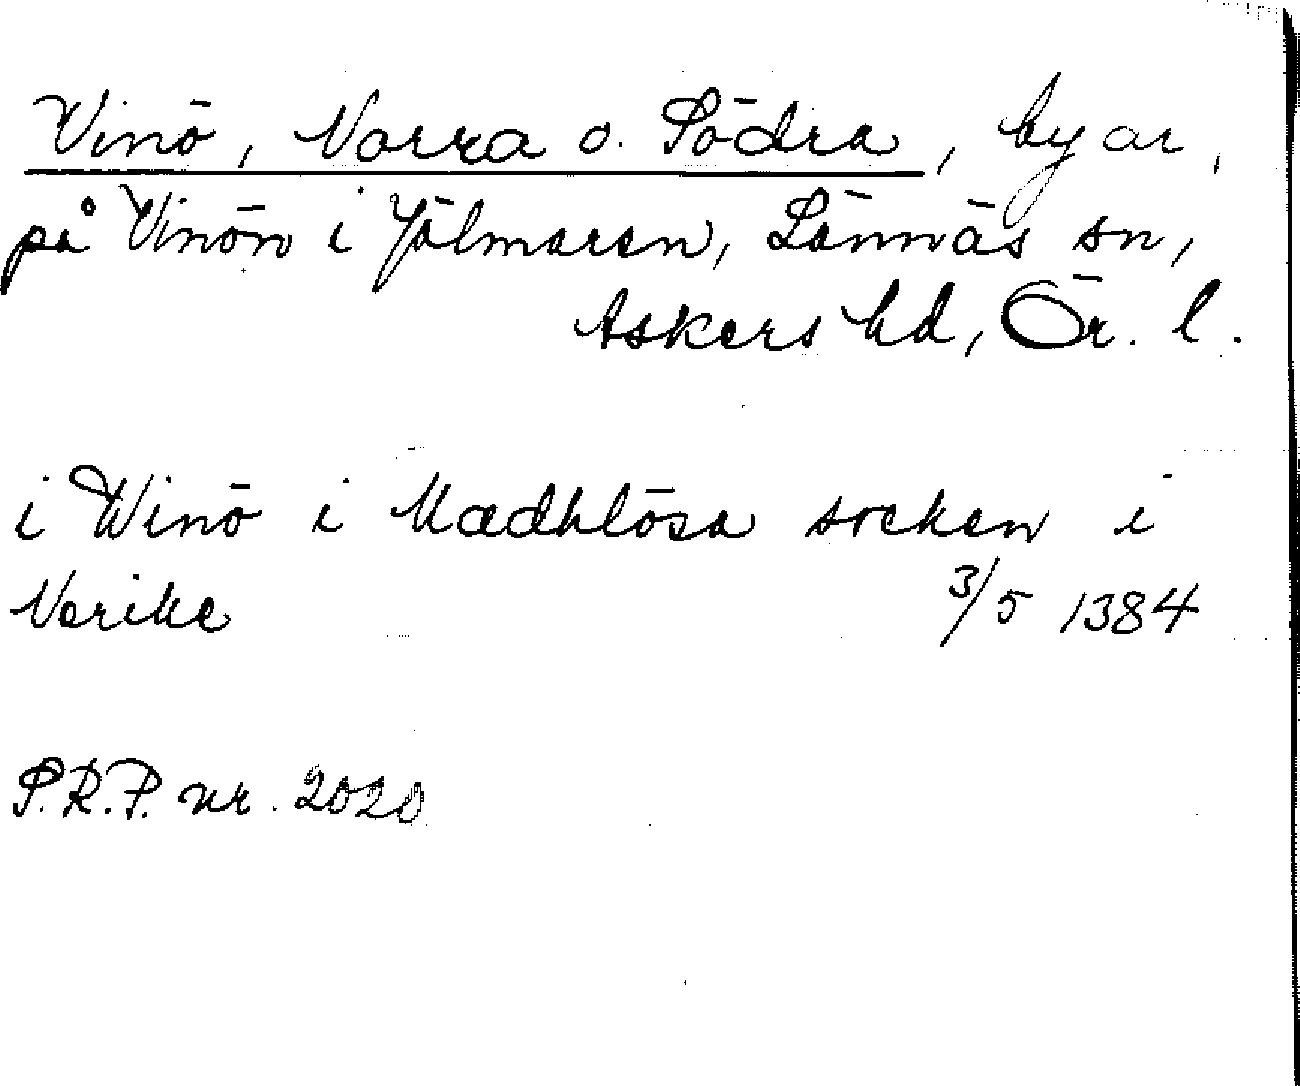 Vinö, Norra o. Södra, byar,
på Vinön i Hjälmaren, Lännäs sn,
Askers hd, Ör. l.
i Winö i Mædhlösa socken i
Nerike 3/5 1384
S.R.P. nr. 2020